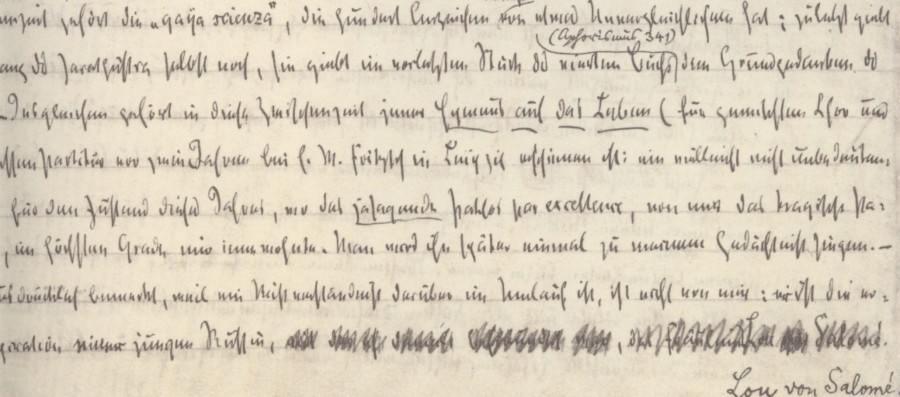 enzeit gehört die „gaya scienza“, die hundert Anzeichen von etwas Unvergleichlichem hat; zuletzt giebt
(Aphorismus 341)
ang des Zarathustra selbst noch, sie giebt im vorletzten Stück des vierten Buchs den Grundgedanken des
– Insgleichen gehört in diese Zwischenzeit jener Hymnus auf das Leben (für gemischten Chor und
essen Partitur vor zwei Jahren bei E. W. Fritzsch in Leipzig erschienen ist: ein vielleicht nicht unbedeuten-
für den Zustand dieses Jahres, wo das jasagende Pathos par excellence, von mir das tragische Pa-
, im höchsten Grade mir innewohnte. Man wird ihn später einmal zu meinem Gedächtniß singen. –
ausdrücklich bemerkt, weil ein Mißverständniß darüber im Umlauf ist, ist nicht von mir: er ist die er-
piration einer jungen Russin, Salomé.
Lou von Salomé.